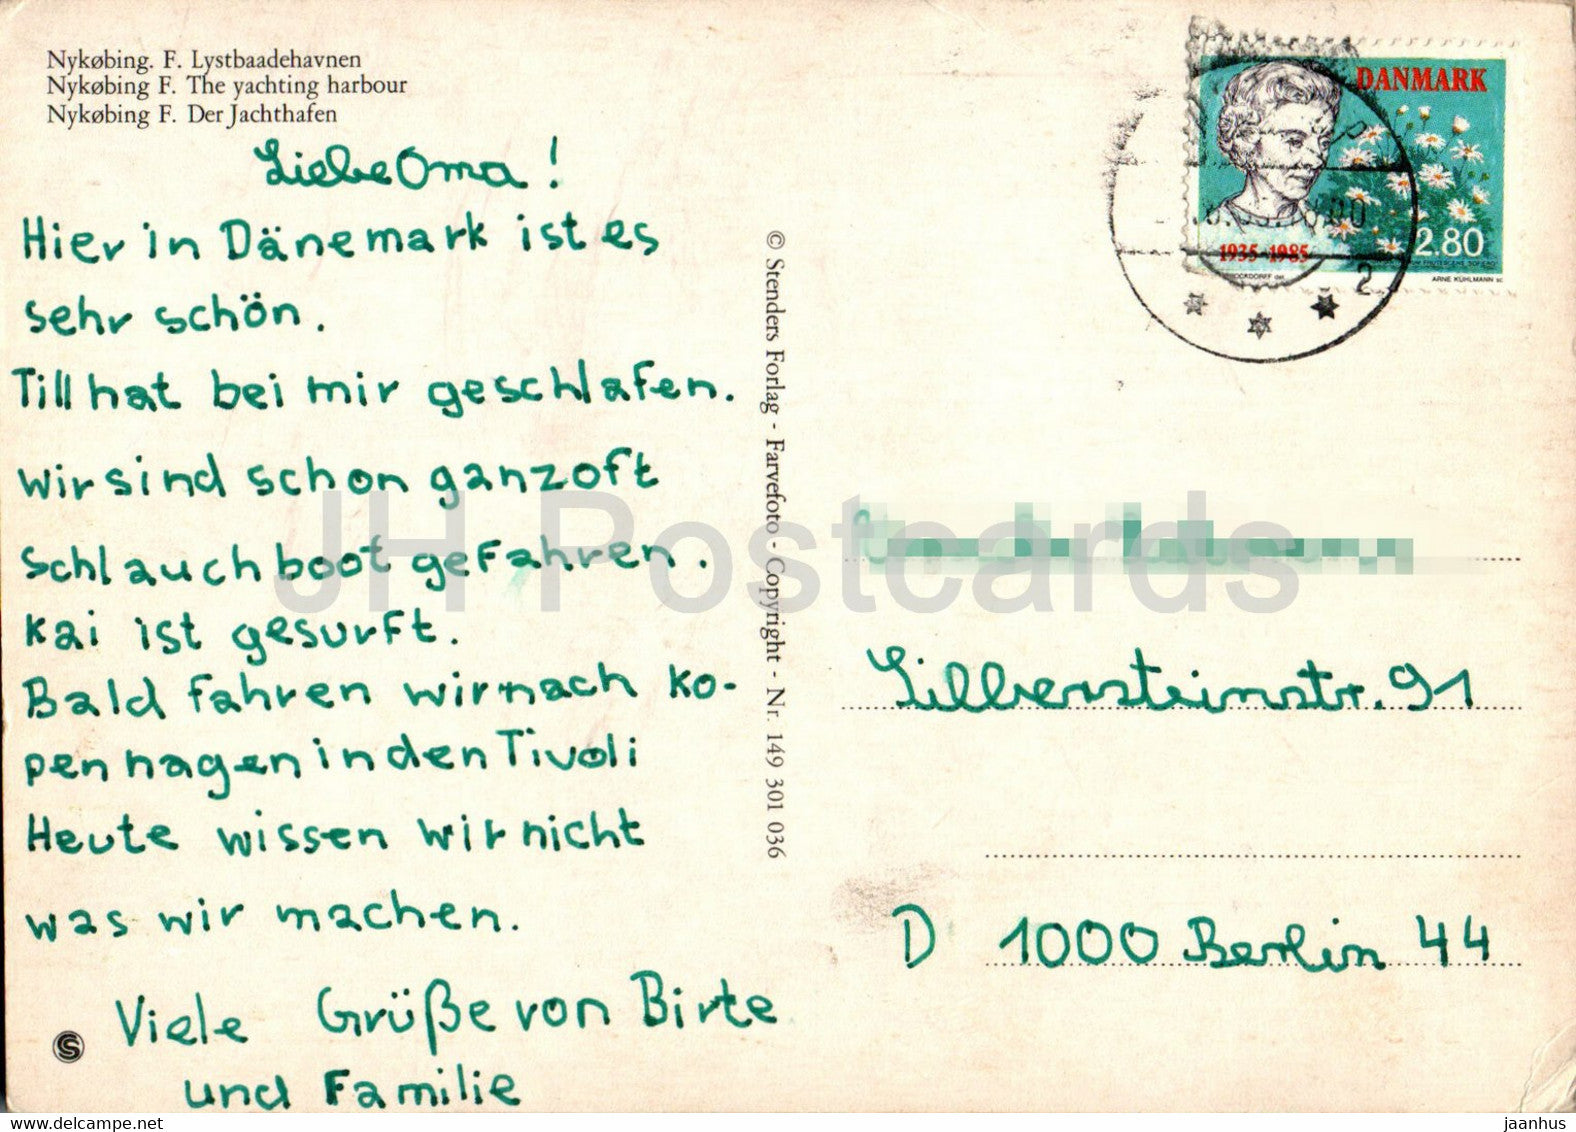 Nykøbing. F. Lystbaadehavnen
Nykøbing F. The yachting harbour
Nykøbing F. Der Jachthafen
Liebe Oma!
Hier in Dänemark ist es
sehr schön.
Till hat bei mir geschlafen.
wir sind schon ganz oft
schlauchboot gefahren.
Kai ist gesurft.
Bald fahren wir nach ko-
pennagen in den Tivoli
Heute wissen wir nicht
was wir machen.
Viele Grüße von Birte
und Familie
© Stenders Forlag - Farvefoto - Copyright - Nr. 149 301 036
DANMARK
1935-1985
2.80
ARNE KÜHLMANN sc
2
Silbersteinstr. 91
D 1000 Berlin 44
JH Postcards
hippostcard.com
jaanhus